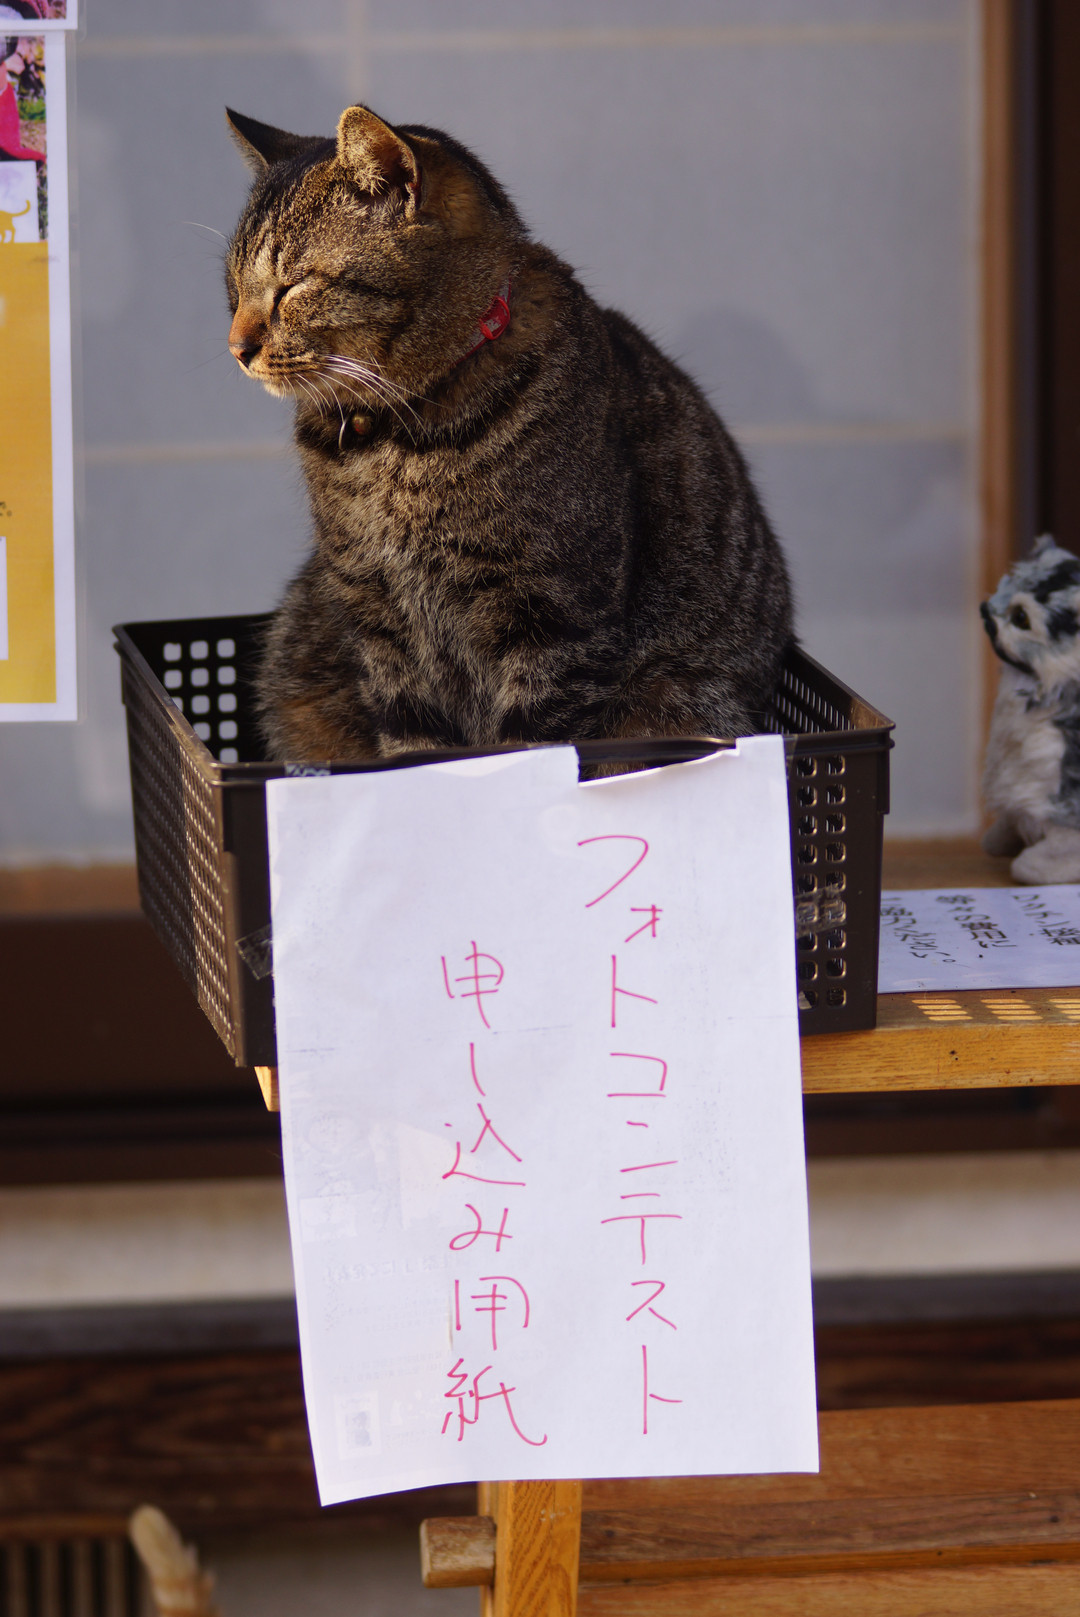 フォトコンテスト
申し込み用紙